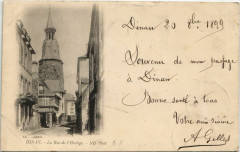 Dinan 20 8bre 1899
Souvenir de mon passage
à Dinan
Bonne santé à tous
Votre ami sincère
A. Gilles
DINAN. - La Rue de l'Horloge. ND Phot.